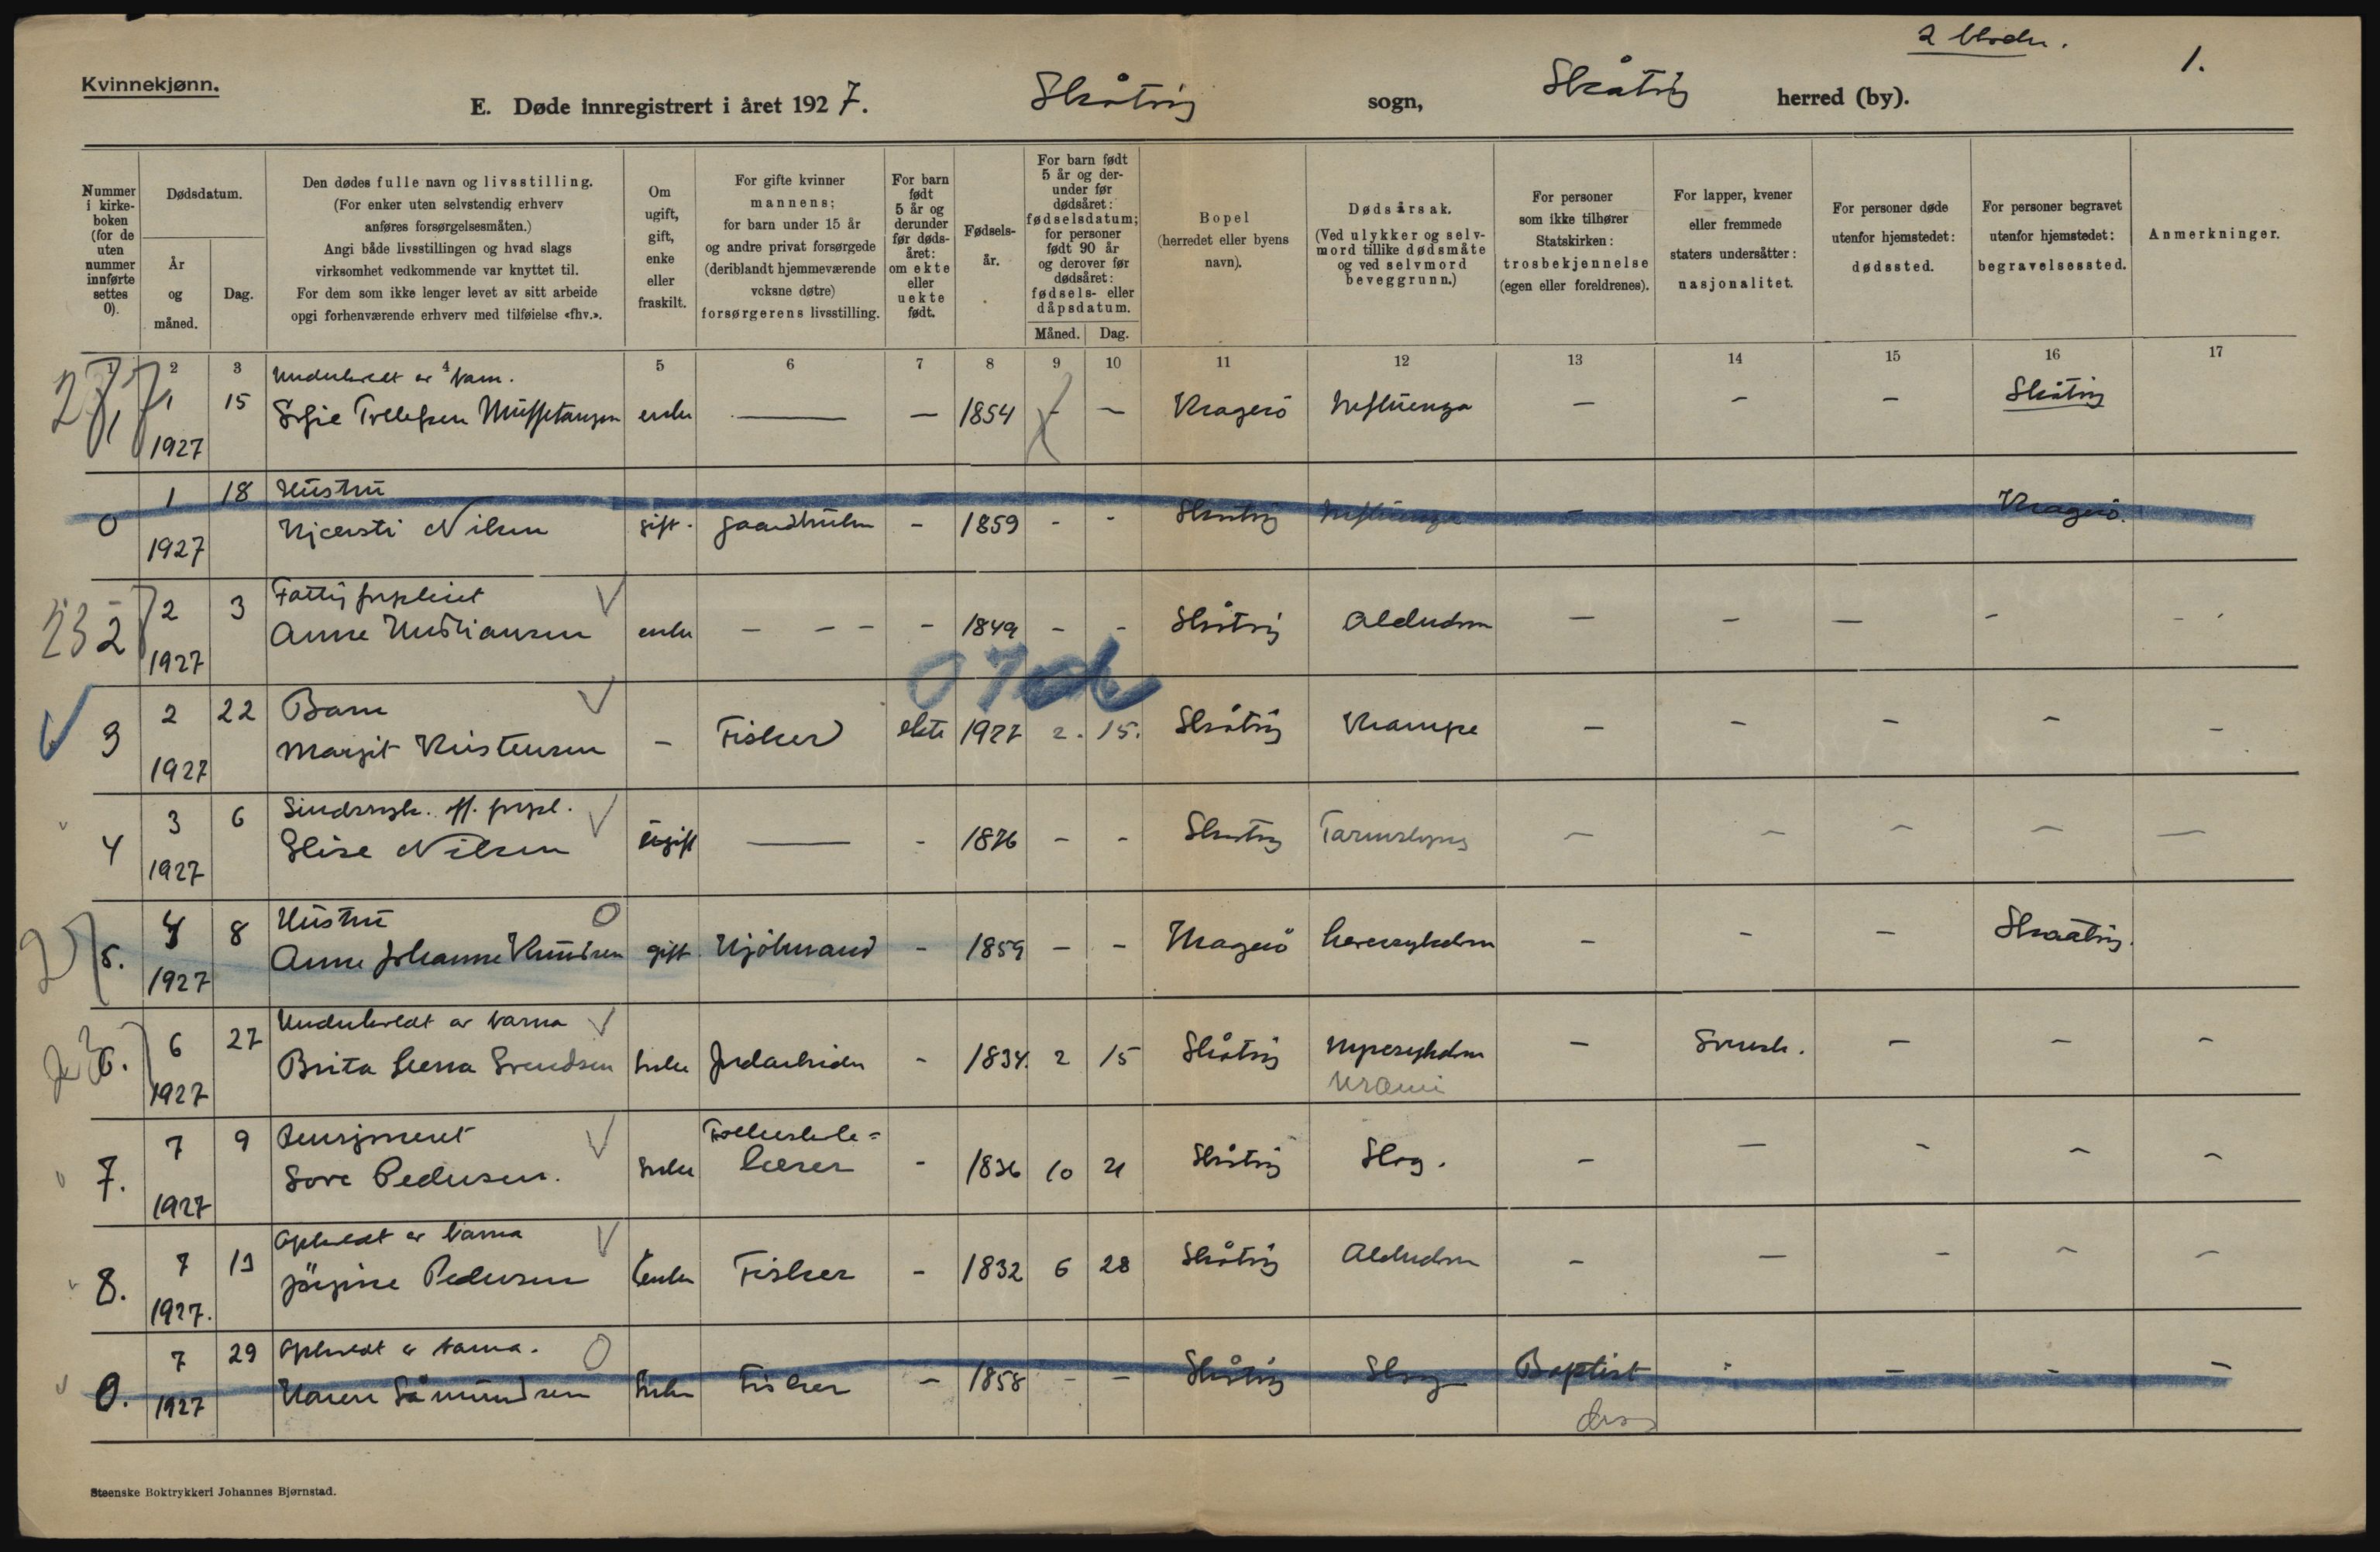 2 blade.
1.
Kvinnekjønn.
E. Døde innregistrert i året 1927. Skåtøy sogn, Skåtøy herred (by).
Nummer i kirkeboken (for de uten nummer innførte settes 0).
Dødsdatum.
År og måned.
Dag.
Den dødes fulle navn og livsstilling.
(For enker uten selvstendig erhverv
anføres forsørgelsesmåten.)
Angi både livsstillingen og hvad slags
virksomhet vedkommende var knyttet til.
For dem som ikke lenger levet av sitt arbeide
opgi forhenværende erhverv med tilføielse «fhv.».
Om ugift, gift, enke eller fraskilt.
For gifte kvinner
mannens;
for barn under 15 år
og andre privat forsørgede
(deriblandt hjemmeværende
voksne døtre)
forsørgerens livsstilling.
For barn født 5 år og derunder før dødsåret: om ekte eller uekte født.
Fødselsår.
For barn født 5 år og derunder før dødsåret: fødselsdatum; for personer født 90 år og derover før dødsåret: fødsels- eller dåpsdatum.
Måned. Dag.
Bopel
(herredet eller byens
navn).
Dødsårsak.
(Ved ulykker og selvmord tillike dødsmåte
og ved selvmord
beveggrunn.)
For personer
som ikke tilhører
Statskirken:
trosbekjennelse
(egen eller foreldrenes).
For lapper, kvener
eller fremmede
staters undersåtter:
nasjonalitet.
For personer døde
utenfor hjemstedet:
dødssted.
For personer begravet
utenfor hjemstedet:
begravelsessted.
Anmerkninger.
1 2 3 4 5 6 7 8 9 10 11 12 13 14 15 16 17
Underholdt av barn.
1 1 15 Sofie Tollefsen enke — — 1854 - — Kragerö Influenza — - — Skåtöy
1927
1 18 Hustru
0 Kjersti Nilsen gift. gaardbruker - 1859 - - Skåtöy Influenza - - - Kragerö.
1927
2 3 Fattigforpleiet
2 Anne Kristiansen enke - - - - 1849 - - Skåtöy Alderdom — - — - -
1927
2 22 Barn
3 Margit Kristensen - Fisker ekte 1927 2. 15. Skåtöy Krampe - - - - -
1927
3 6 Sindssyk. off. forpl.
4 Elise Nilsen ugift — - 1876 - - Skåtöy Tarmslyng - - - - —
1927
4 8 Hustru
5. Anne Johanne Knudsen gift Sjömand - 1859 - - Kragerö Leversykdom - - - Skaatöy.
1927
6 27 Underholdt av barna
6. Brita Lena Svendsen Enke Jordarbeider - 1834. 2 15 Skåtöy Nyresykdom - Svensk. - - -
1927 Uræmi
7 9 Pensjonert Folkeskole=
7. Pedersen. Enke lærer - 1836 10 21 Skåtöy Slag. - - - - -
1927
7 13 Opholdt av barna
8. Jörgine Pedersen Enke Fisker - 1832 6 28 Skåtöy Alderdom - - - - -
1927.
7 29 Opholdt av barna.
0. Karen Såmundsen Enke Fisker - 1858 - - Skåtöy Slag Baptist - - - -
1927 diss
Steenske Boktrykkeri Johannes Bjørnstad.